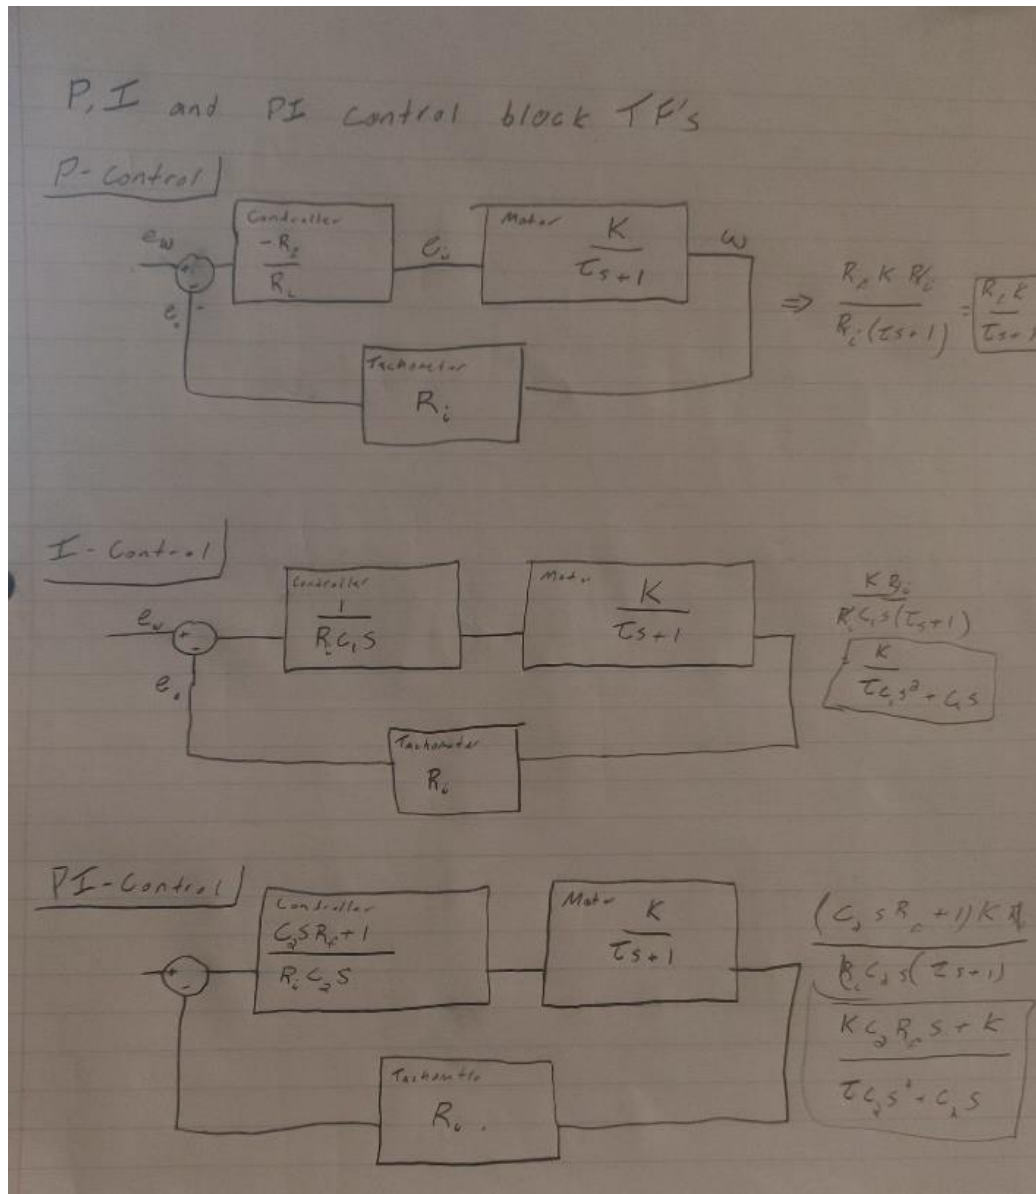 P, I and PI control block TF's
P-Control
Controller
-R_f / R_i
e_w
+
-
e_i
Motor
K / τs+1
ω
e.
-
Tachometer
R_i
⇒ R_f K R_i / R_i (τs+1) = R_f K / τs+1
I-Control
Controller
1 / R_i C_1 S
Motor
K / τs+1
e_w
+
-
e.
Tachometer
R_i
K R_i / R_i C_1 s(τs+1)
= K / τC_1 s² + C_1 s
PI-Control
Controller
C_2 S R_f + 1 / R_i C_2 S
Motor
K / τs+1
+
-
Tachomtr
R_i .
(C_2 s R_f + 1) K R / R_i C_2 s(τs+1)
K C_2 R_f s + K / τC_2 s² + C_2 s